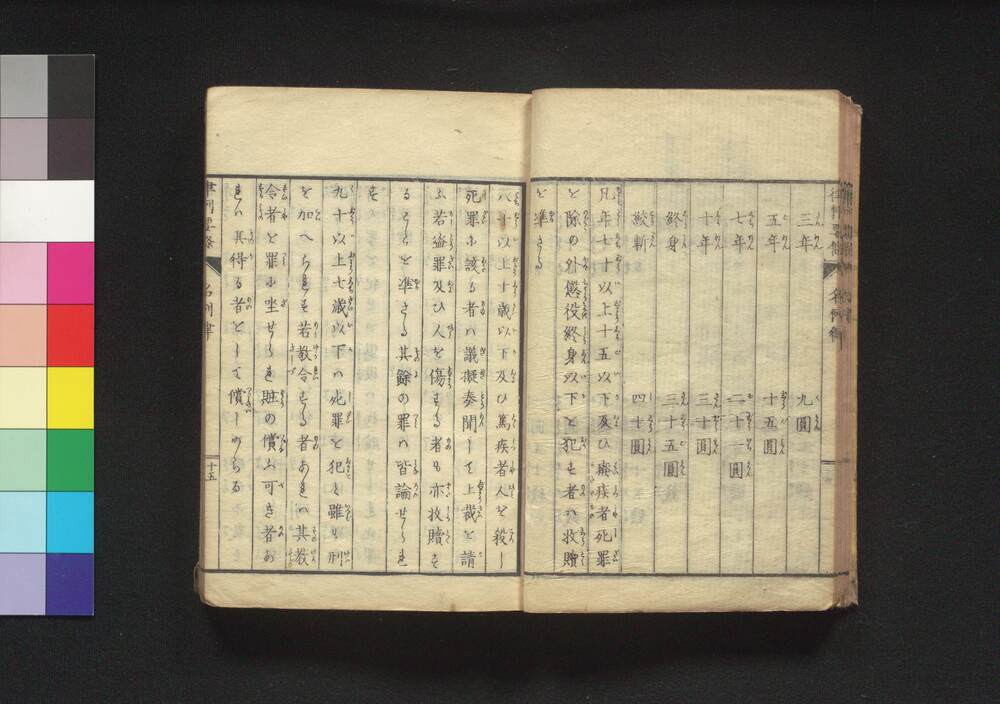 三年　九圓
五年　十五圓
七年　二十一圓
十年　三十圓
終身　三十五圓
絞斬　四十圓
凡年七十以上十五以下及ひ癈疾者死罪
を除の外懲役終身以下を犯す者ハ收贖
を準さる
八十以上十歳以下及ひ篤疾者人を殺し
死罪に該る者ハ議擬奏聞して上裁を請
ふ若盗罪及ひ人を傷する者も亦收贖す
るとを準さる其餘の罪ハ皆論せられ
す
九十以上七歳以下ハ死罪を犯と雖も刑
を加へられす若教令する者あれハ其教
令者を罪に坐せられ賍の償ふ可き者あ
れハ其得る者をして償しめらる
名例律
十五